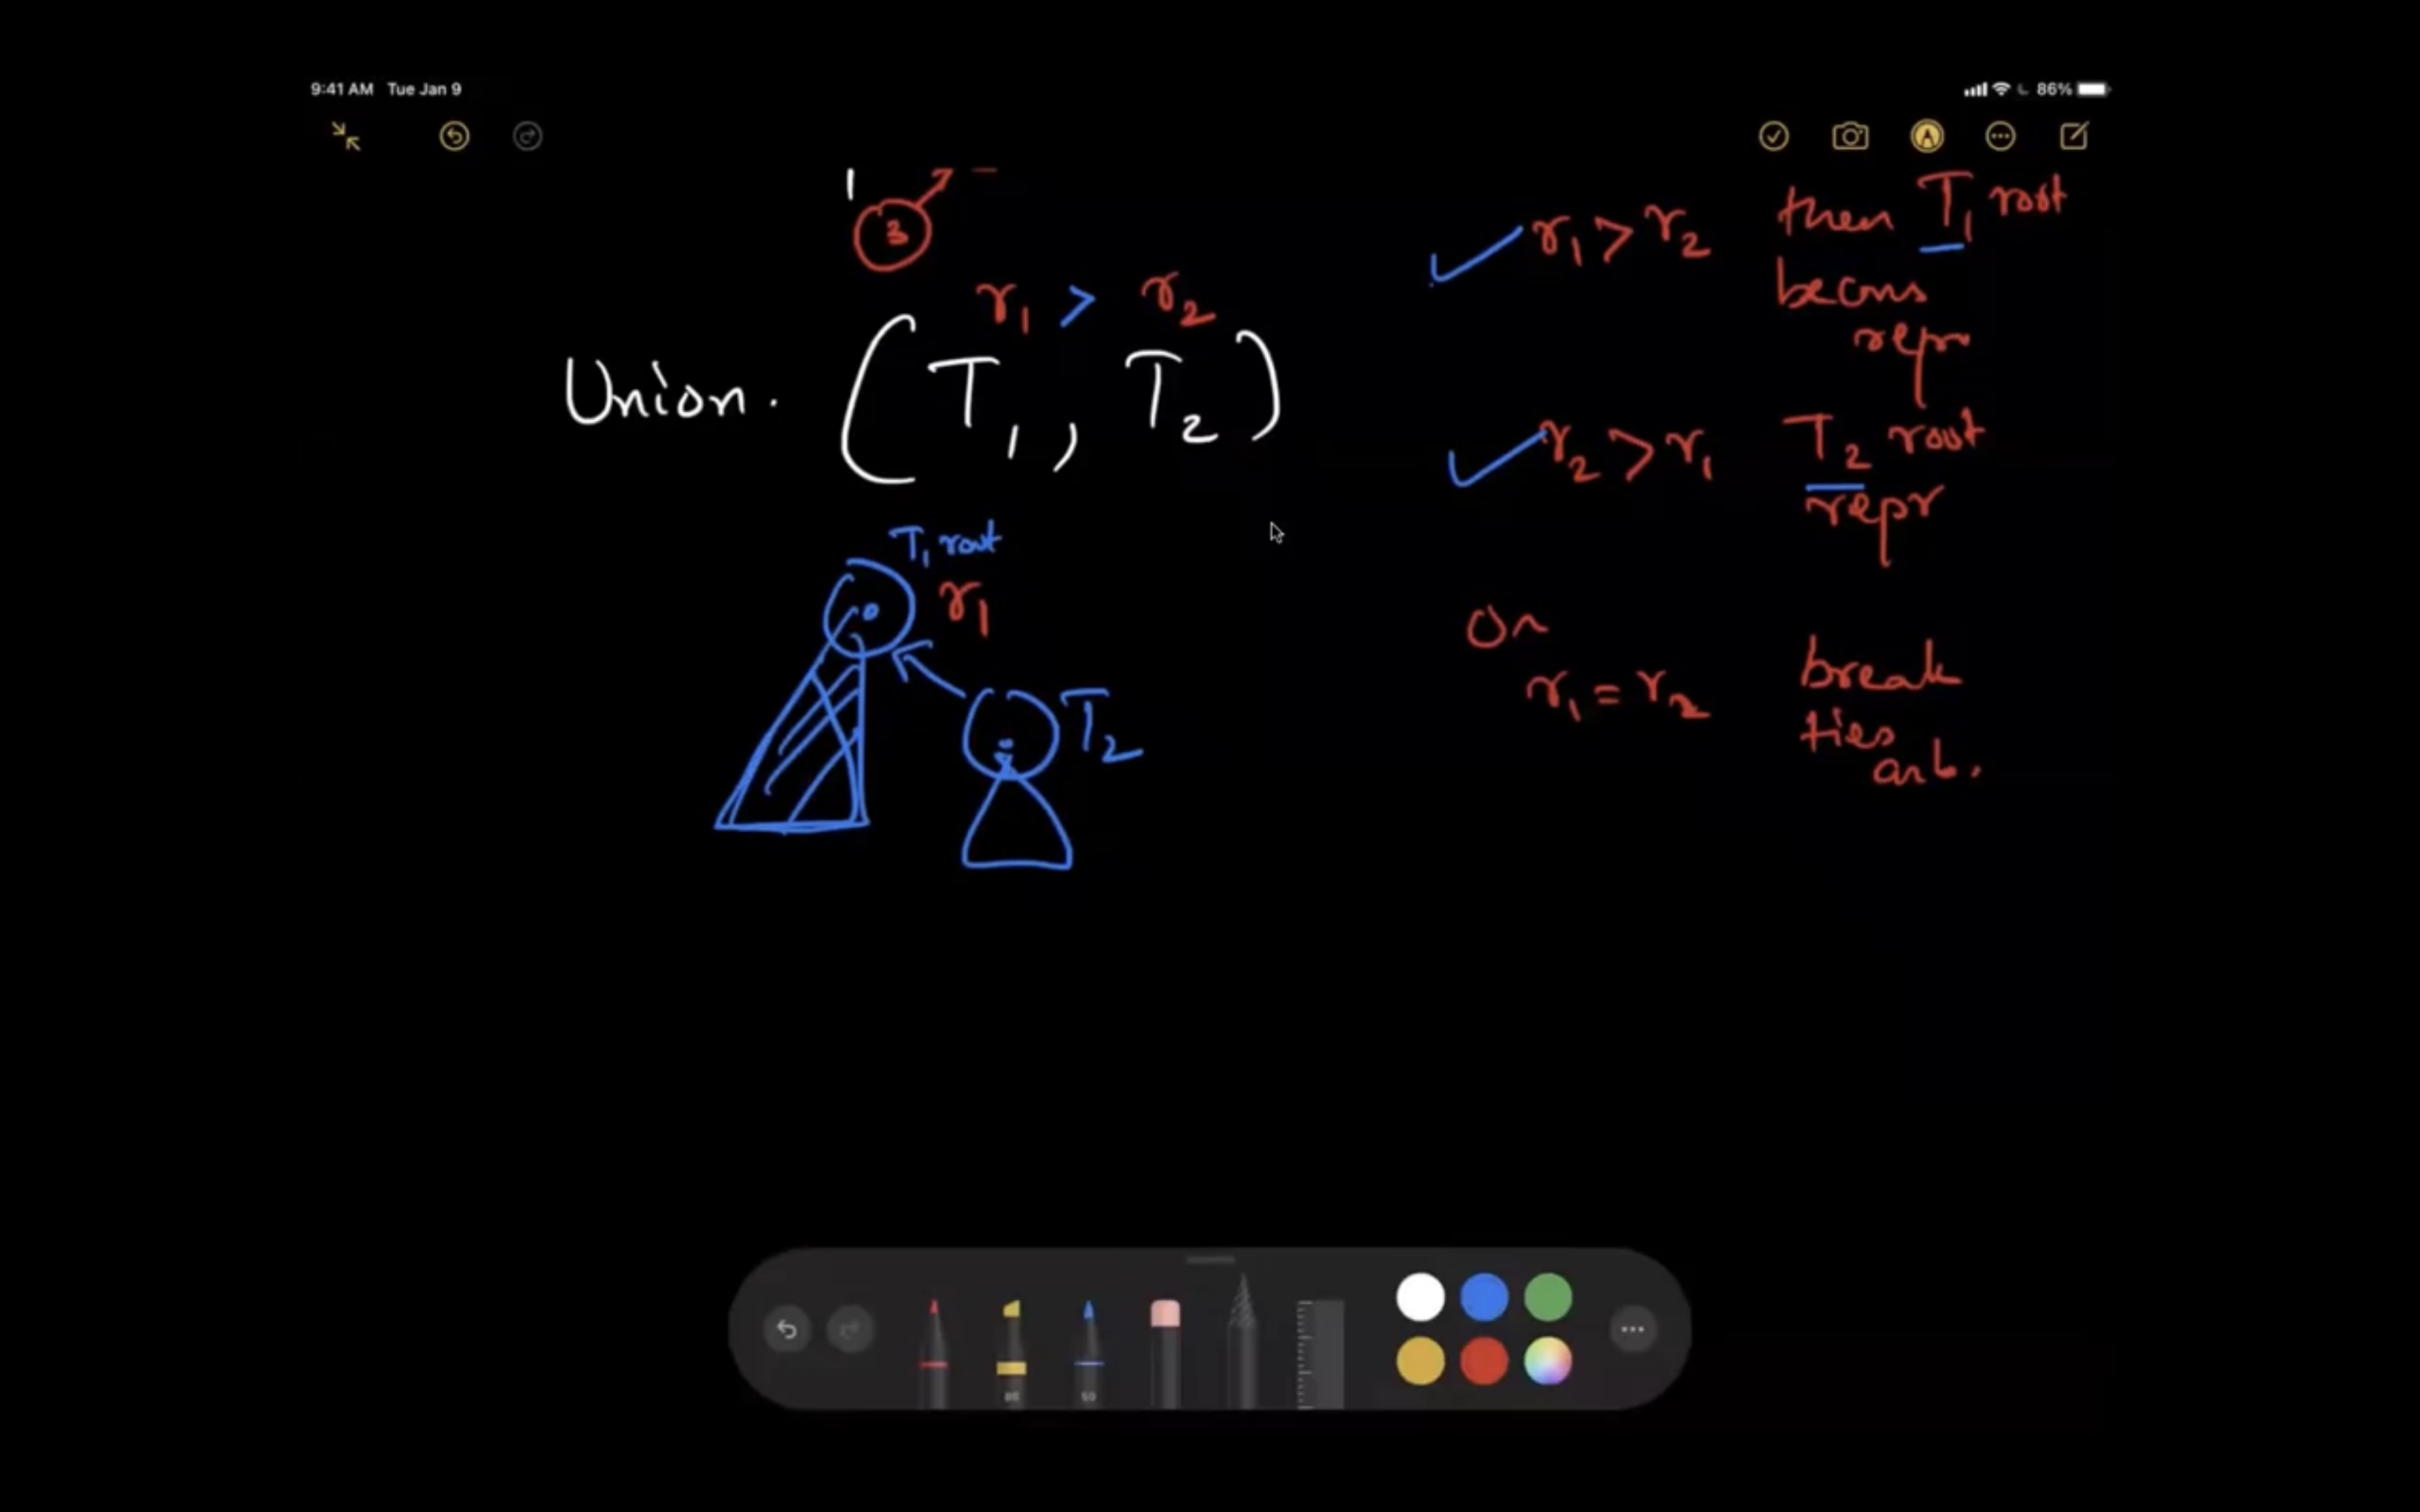 9:41 AM Tue Jan 9
86%
1
3
r1 > r2
Union. (T1, T2)
T1 root
r1
T2
r1 > r2 then T1 root
becoms
repr
r2 > r1 T2 root
repr
or
r1 = r2 break
ties
arb.
85 50